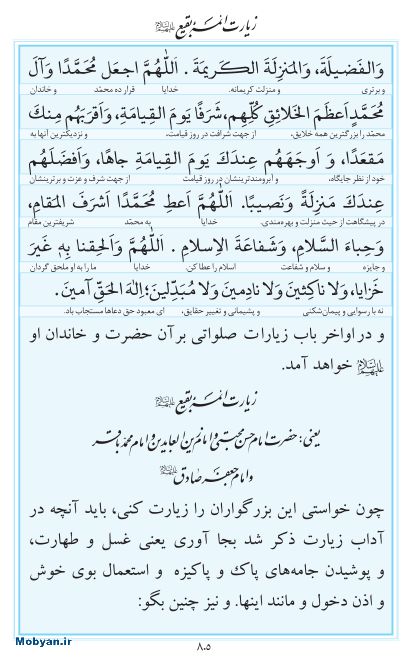 زیارت ائمه بقیع علیهم السلام
وَالفَضیلَةَ، وَالمَنزِلَةَ الکَریمَةَ . اَللّٰهُمَّ اجعَل مُحَمَّدًا وَآلَ
و برتری و منزلت کریمانه. خدایا قرار ده محمّد و خاندان
مُحَمَّدٍ اَعظَمَ الخَلائِقِ کُلِّهِم، شَرَفًا یَومَ القِیامَةِ، وَاَقرَبَهُم مِنكَ
محمّد را بزرگترین همه خلایق، از جهت شرافت در روز قیامت، و نزدیکترین آنها به
مَقعَدًا، وَ اَوجَهَهُم عِندَكَ یَومَ القِیامَةِ جاهًا، وَاَفضَلَهُم
خود از نظر جایگاه، و آبرومندترینشان در روز قیامت از جهت شرف و عزت و برترینشان
عِندَكَ مَنزِلَةً وَنَصیبًا. اَللّٰهُمَّ اَعطِ مُحَمَّدًا اَشرَفَ المَقامِ،
در پیشگاهت از حیث منزلت و بهره‌مندی. خدایا به محمّد شریفترین مقام
وَحِباءَ السَّلامِ، وَشَفاعَةَ الاِسلامِ . اَللّٰهُمَّ وَاَلحِقنا بِهٖ غَیرَ
و جایزه و سلام و شفاعت اسلام را عطا کن. خدایا ما را به او ملحق گردان
خَزایا، وَلا ناکِثینَ وَلا نادِمینَ وَلا مُبَدِّلینَ؛ اِلٰهَ الحَقِّ آمینَ .
نه با رسوایی و پیمان‌شکنی و پشیمانی و تغییر حقایق، ای معبود حق دعاها مستجاب باد.
و در اواخر باب زیارات صلواتی بر آن حضرت و خاندان او
علیهم السلام خواهد آمد.
زیارت ائمه بقیع علیهم السلام
یعنی: حضرت امام حسن مجتبی و امام زین العابدین و امام محمد باقر
و امام جعفر صادق علیهم السلام
چون خواستی این بزرگواران را زیارت کنی، باید آنچه در
آداب زیارت ذکر شد بجا آوری یعنی غسل و طهارت،
و پوشیدن جامه‌های پاک و پاکیزه و استعمال بوی خوش
و اذن دخول و مانند اینها. و نیز چنین بگو:
Mobyan.ir
۸۰۵